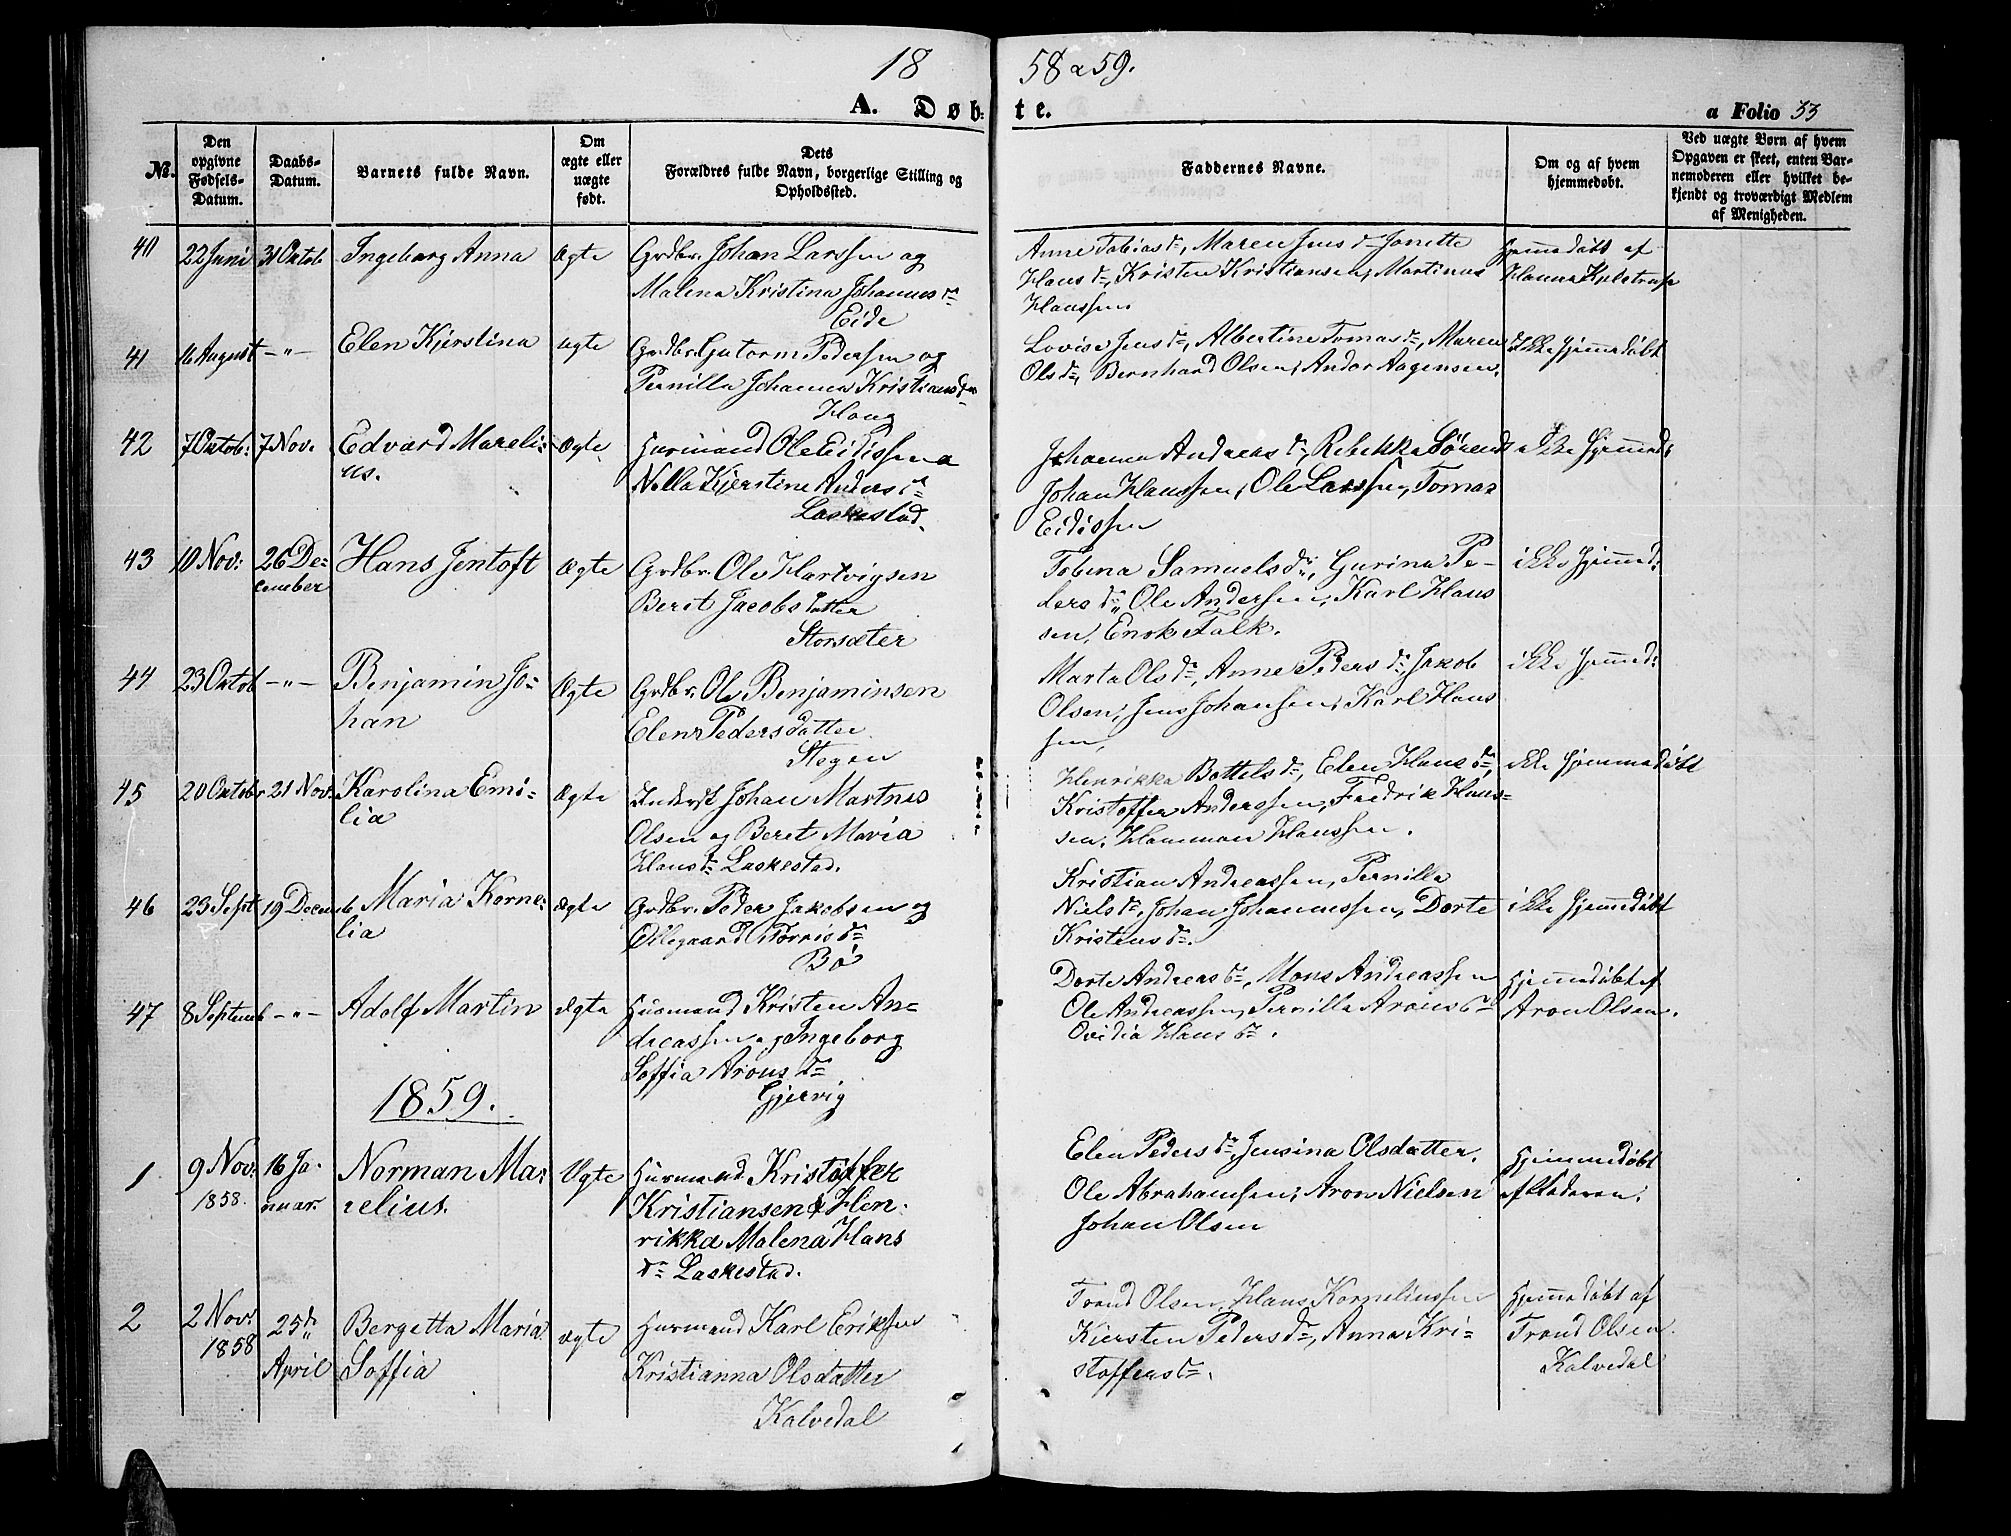 18 58 a 59.
A. Døb: te.
a Folio 33
No.
Den opgivne Fødsels-Datum.
Daabs-Datum.
Barnets fulde Navn.
Om ægte eller uægte født.
Dets Forældres fulde Navn, borgerlige Stilling og Opholdssted.
Faddernes Navne.
Om og af hvem hjemmedøbt.
Ved uægte Børn af hvem Opgaven er skeet, enten Barnemoderen eller hvilket bekjendt og troværdigt Medlem af Menigheden.
40 22 Juni 31 Octob Ingeborg Anna Ægte Grdbr. Johan Larssen og
Malena Kristina Johannes dr
Eide
Anne Tobias dr, Maren Jens dr Jonette
Hans dr, Kristen Kristiansen, Martinus
Hanssen
Hjemmedøbt af
Hanna
41 16 August -"- Elen Kjerstina ægte Grdbr. Gutorm Pedersen og
Pernilla Johanna Kristians dr
Haug
Lovise Jens dr, Albertine Tomas dr, Maren
Ols dr, Bernhard Olsen, Andor Aagensen.
Ikke hjemmedøbt
42 7 Octob: 7 Nov. Edvard Mareli:
us.
Ægte Husmand Ole Eidissen a
Nella Kjerstine Anders dr
Laskestad.
Johanna Andreas dr, Rebekka Sørens dr
Johan Hanssen, Ole Larssen, Tomas
Eidissen
ikke hjemmed:
43 10 Nov: 26 De-
cember
Hans Jentoft Ægte Grdbr. Ole Hartvigsen
Beret Jacobs datter
Storsæter
Tobina Samuels dr, Gurina Pe-
ders dr, Ole Andersen, Karl Hans
sen, Enok Falk.
ikke hjemmed:
44 23 Octob -"- Benjamin Jo-
han
Ægte Grdbr. Ole Benjaminsen
Elen Pedersdatter
Stegen
Marta Ols dr, Anne Peders dr, Jakob
Olsen, Jens Johansen, Karl Hans
sen,
ikke hjemmed:
45 20 Octobr 21 Nov. Karolina Emi-
lia
Ægte Inderst Johan Martnus
Olsen og Beret Maria
Hans dr Laskestad.
Henrikka Bottels dr, Elen Hans dr,
Kristoffer Anderssen, Fredrik Hans-
sen, Hanssen.
ikke hjemmedøbt
46 23 Sept 19 Decemb Maria Korne:
lia
Ægte Grdbr. Peder Jakobsen og
Ollegaard Torris dr
Bø
Kristian Andreassen, Pernilla
Niels dr, Johan Johannessen, Dorte
Kristens dr.
ikke hjemmedøbt
47 8 Septemb -"- Adolf Martin Ægte Husmand Kristen An-
dreassen og Ingeborg
Soffia Arons dr
Gjervig
Dorte Andreas dr, Mons Andreassen
Ole Andreassen, Pernilla Arons dr
Ovidia Hans dr.
Hjemmedøbt af
Aron Olsen.
1859.
1 9 Nov: 1858. 16 Ja-
nuar.
Norman Ma:
relius.
Ægte Husmand Kristoffer
Kristiansen & Hen:
rikka Malena Hans
dr Laskestad.
Elen Peders dr, Jensina Olsdatter.
Ole Abrahamsen, Aron Nielsen
Johan Olsen
Hjemmedøbt
af Faderen.
2 2 Nov: 1858 25de
April
Bergetta Maria
Soffia
ægte Husmand Karl Erikssen
Kristianna Olsdatter
Kalvedal
Trond Olsen, Hans Korneliussen
Kiersten Peders dr, Anna Kri-
stoffers dr.
Hjemmedøbt af
Trond Olsen
Kalvedal